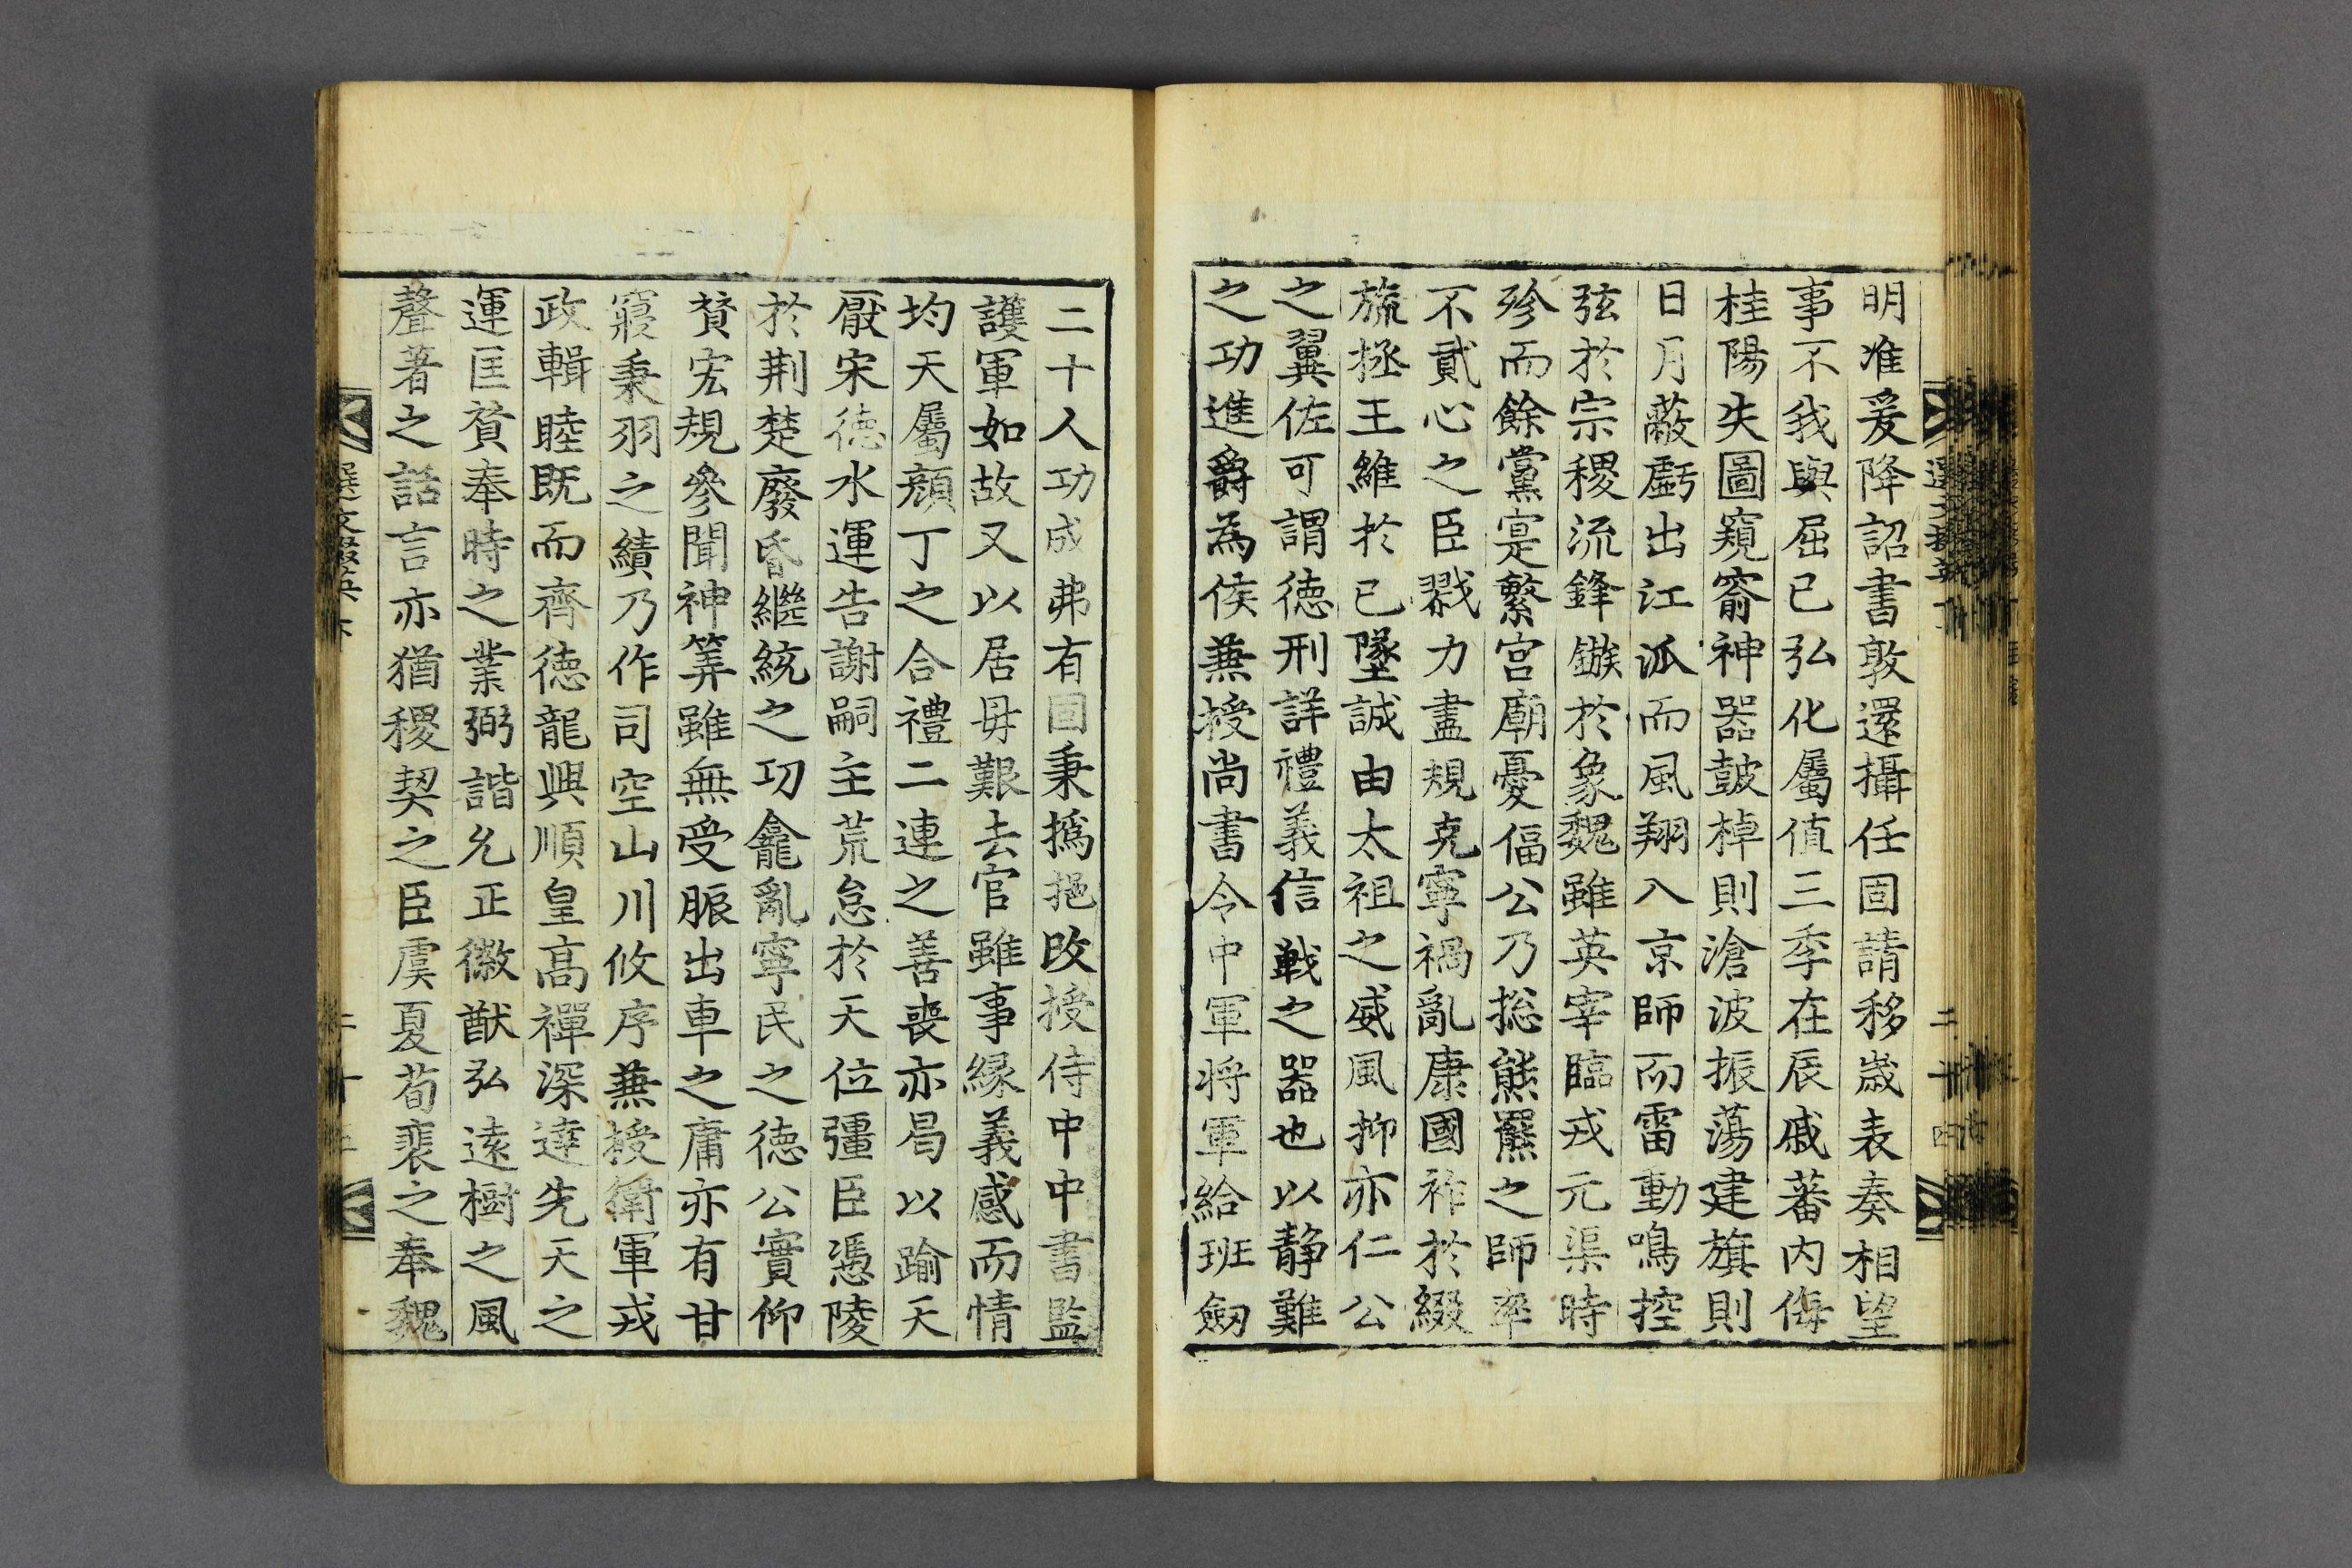 明准爰降詔書敦還攝任固請移歲表奏相望
事不我與屈已弘化屬值三季在辰戚蕃內侮
桂陽失圖窺窬神器鼓棹則滄波振蕩建旗則
日月蔽虧出江派而風翔入京師而雷動鳴控
弦於宗稷流鋒鏃於象魏雖英宰臨戎元渠時
殄而餘黨寔繁宮廟憂偪公乃摠熊羆之師率
不貳心之臣戮力盡規克寧禍亂康國祚於綴
旒拯王維於已墜誠由太祖之威風抑亦仁公
之翼佐可謂德刑詳禮義信戰之器也以静難
之功進爵為侯兼授尚書令中軍將軍給班劒
二十人功成弗有固秉撝挹改授侍中中書監
護軍如故又以居毋艱去官雖事緣義感而情
均天屬顏丁之合禮二連之善喪亦曷以踰天
厭宋德水運告謝嗣主荒怠於天位彊臣憑陵
於荆楚廢昏繼統之功龕亂寧民之德公實仰
賛宏規參聞神筭雖無受脤出車之庸亦有甘
寢秉羽之績乃作司空山川攸序兼授衛軍戎
政輯睦既而齊德龍興順皇高禪深達先天之
運匡贊奉時之業弼諧允正徽猷弘遠樹之風
聲著之話言亦猶稷契之臣虞夏荀裴之奉魏